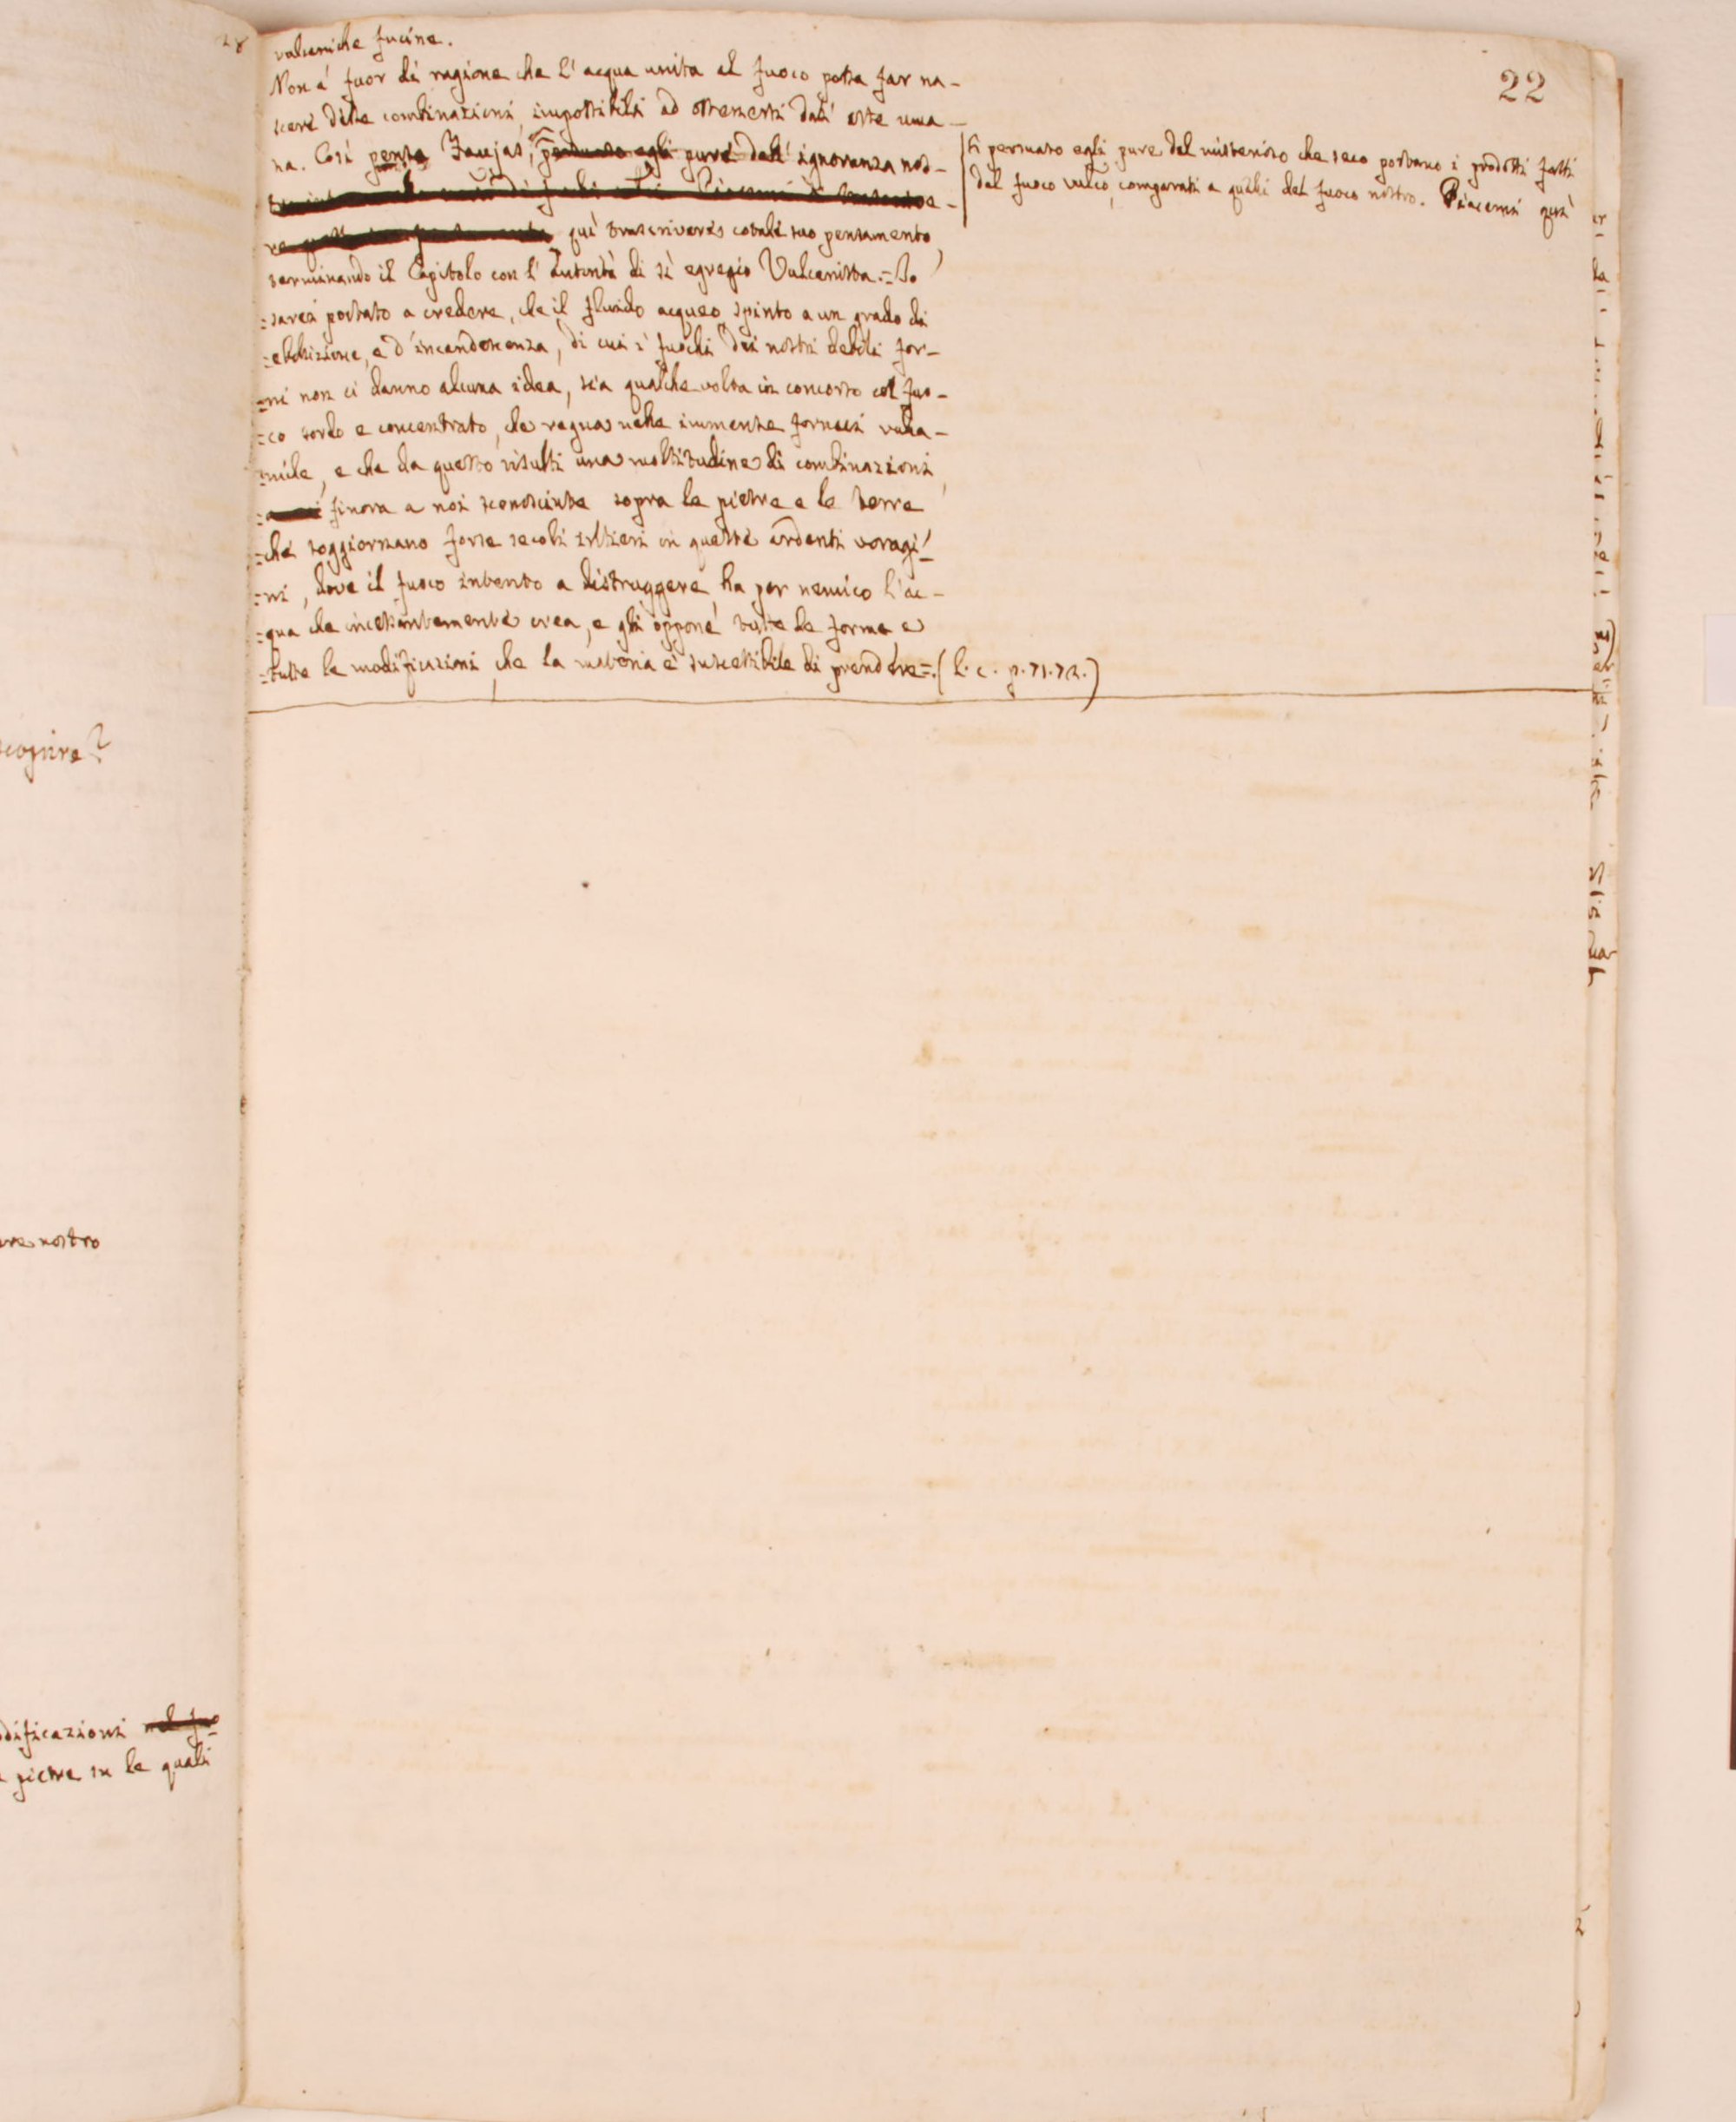 28
22
vulcaniche fucine.
Non è fuor di ragione che l'acqua unita al fuoco possa far na-
scere delle combinazioni impossibili ad ottenersi dall'arte uma-
na. Così pensa Faujas, persuaso egli pure dall'ignoranza nos-
qui trascrivere cotale suo pensamento,
terminando il Capitolo con l'autorità di sì egregio Vulcanista. = Io
= sarei portato a credere, che il fluido acqueo spinto a un grado di
= ebollizione, e d'incandescenza, di cui i fuochi dei nostri debili for-
= ni non ci danno alcuna idea, sia qualche volta in concorso col fuo-
= co sordo e concentrato, che regna nelle immense fornaci vulca-
= niche, e che da questo risulti una moltitudine di combinazioni,
= finora a noi sconosciute sopra le pietre e le terre
= che soggiornano forse secoli intieri in queste ardenti voragi-
= ni, dove il fuoco intento a distruggere ha per nemico l'ac-
= qua che incessantemente crea, e gli oppone tutte le forme e
= tutte le modificazioni, che la materia è suscettibile di prendere =. (l. c. p. 71. 72.)
persuaso egli pure del misterioso che seco portano i prodotti fatti
dal fuoco vulco, comparati a quelli del fuoco nostro. Piacemi qui
scoprire?
nostro
dificazioni
pietre su le quali